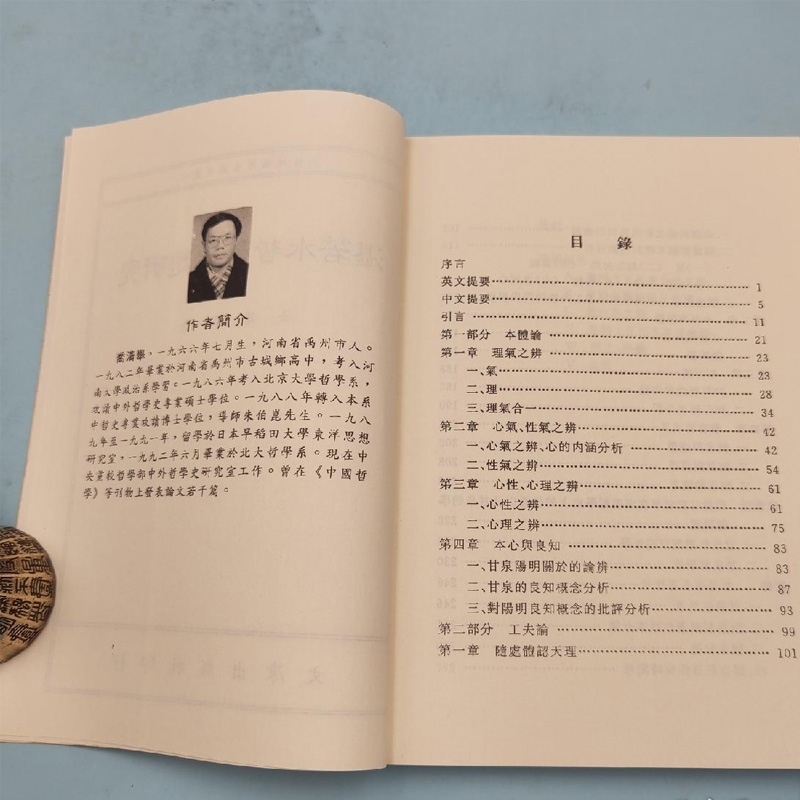 作者簡介
喬清舉，一九六六年七月生，河南省禹州市人。
一九八二年畢業於河南省禹州市古城鄉高中，考入河
南大學政治系學習。一九八六年考入北京大學哲學系，
攻讀中外哲學史專業碩士學位。一九八八年轉入本系
中哲史專業攻讀博士學位，導師朱伯崑先生。一九八
九年至一九九一年，留學於日本早稻田大學東洋思想
研究室，一九九二年六月畢業於北大哲學系。現在中
央黨校哲學部中外哲學史研究室工作。曾在《中國哲
學》等刊物上發表論文若干篇。
目錄
序言
英文提要……1
中文提要……5
引言……11
第一部分 本體論……21
第一章 理氣之辨……23
一、氣……23
二、理……28
三、理氣合一……34
第二章 心氣、性氣之辨……42
一、心氣之辨、心的内涵分析……42
二、性氣之辨……54
第三章 心性、心理之辨……61
一、心性之辨……61
二、心理之辨……75
第四章 本心與良知……83
一、甘泉陽明關於的論辨……83
二、甘泉的良知概念分析……87
三、對陽明良知概念的批評分析……93
第二部分 工夫論……99
第一章 隨處體認天理……101